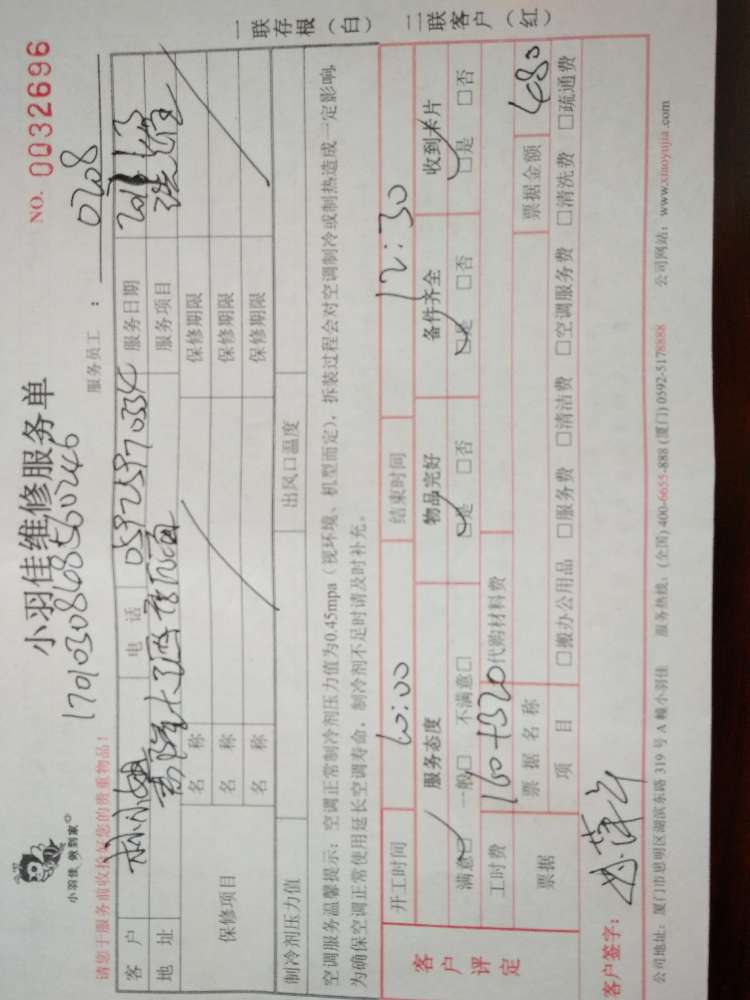 小羽佳 例到家
小羽佳维修服务单
NO. 0032696
17010308685600246
请您于服务前收捡好您的贵重物品！
服务员工： 0208
客户 林小姐 电话 服务日期
地址 服务项目
保修项目 名称 保修期限
名称 保修期限
名称 保修期限
制冷剂压力值 出风口温度
空调服务温馨提示：空调正常制冷剂压力值为0.45mpa（视环境、机型而定），拆装过程会对空调制冷或制热造成一定影响，
为确保空调正常使用延长空调寿命，制冷剂不足时请及时补充。
一联存根（白） 二联客户（红）
开工时间 10:00 结束时间 12:30
客户评定 服务态度 物品完好 备件齐全 收到米片
满意□ 一般□ 不满意□ □是 □否 □是 □否 □是 □否
工时费 160+320 代购材料费
票据 票据名称 票据金额 480
项目 □搬办公用品 □服务费 □清洁费 □空调服务费 □清洗费 □疏通费
客户签字：
公司地址：厦门市思明区湖滨东路 319 号 A 幢小羽佳 服务热线：(全国) 400-6655-888 (厦门) 0592-5178888 公司网站：www.xiaoyujia.com